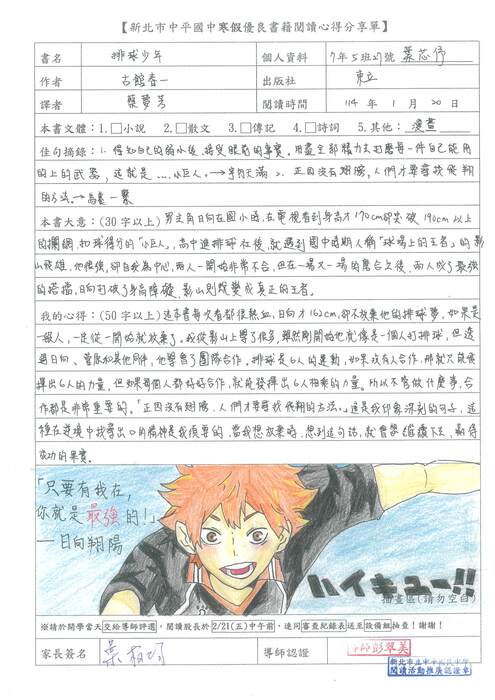 【新北市中平國中寒假優良書籍閱讀心得分享單】
書名 排球少年 個人資料 7年5班27號 葉芯伃
作者 古館春一 出版社 東立
譯者 蔡夢芳 閱讀時間 114年1月20日
本書文體：1.□小說 2.□散文 3.□傳記 4.□詩詞 5.其他：漫畫
佳句摘錄：1. 得知自己的弱小後，接受眼前的事實。用盡全部精力去打磨每一件自己能用
的上的武器，這就是....小巨人。→宇內天滿 2. 正因沒有翅膀，人們才要尋找飛翔
的方法→烏養一繫
本書大意：(30字以上) 男主角日向在國小時，在電視看到身高才170cm卻突破190cm以上
的攔網，扣球得分的「小巨人」，高中進排球社後，就遇到國中時期人稱「球場上的王者」的影
山飛雄，他很強，卻自我為中心，兩人一開始非常不合，但在一場又一場的磨合之後，兩人成了最強
的搭擋，日向打破了身高障礙，影山則蛻變成真正的王者。
我的心得：(50字以上) 這本書每次看都很熱血，日向才162cm，卻不放棄他的排球夢，如果是
一般人，一定從一開始就放棄了。我從影山上學了很多，雖然剛開始他就像是一個人打排球，但透
過日向、菅原和其他同伴，他學會了團隊合作。排球是6人的運動，如果沒有人合作，那就只能發
揮出6人的力量，但如果每個人都好好合作，就能發揮出6人相乘的力量。所以不管做什麼事，合
作都是非常重要的。「正因沒有翅膀，人們才要尋找飛翔的方法。」這是我印象深刻的句子，這
種在逆境中找尋出口的精神是我須要的，當我想放棄時，想到這句話，就會學繼續下去，贏得
成功的果實。
「只要有我在，
你就是最強的!」
—日向翔陽
ハイキュー!!
插畫區(請勿空白)
※請於開學當天交給導師評選，閱讀股長於2/21(五)中午前，連同審查紀錄表送至設備組抽查！謝謝！
家長簽名 導師認證
新北市立中平國民中學
閱讀活動推廣認證章